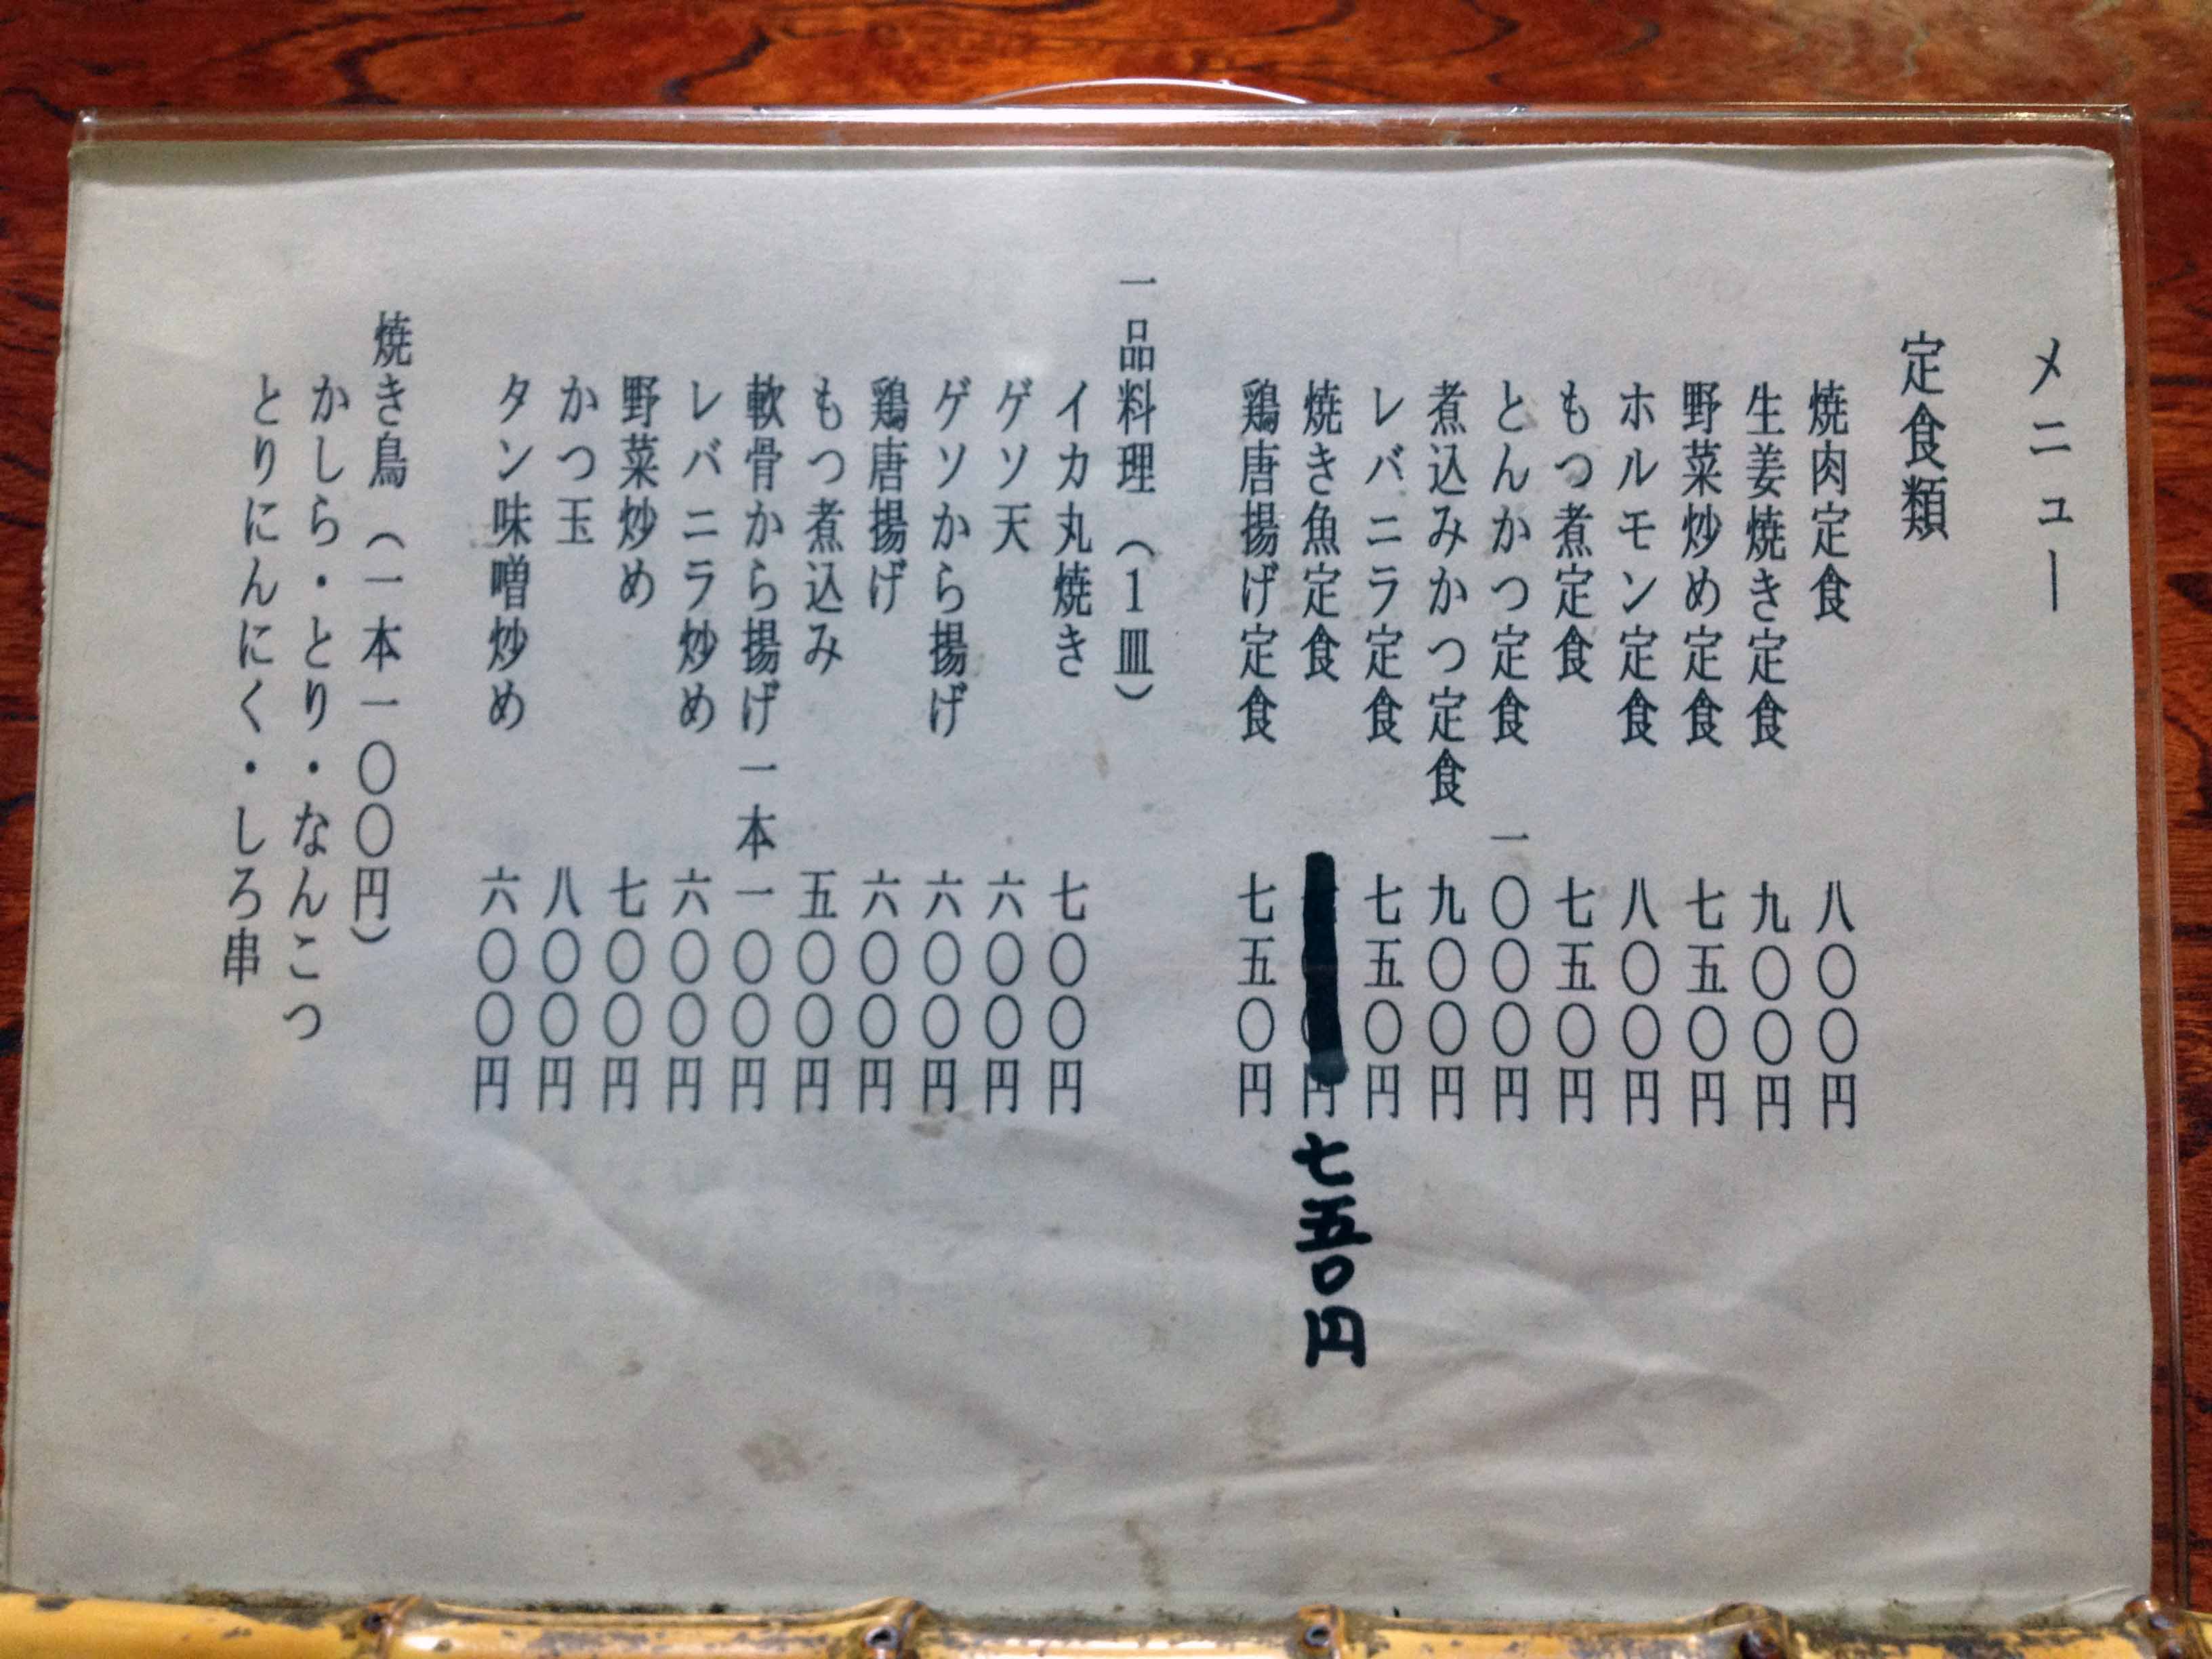 メニュー
定食類
焼肉定食 八〇〇円
生姜焼き定食 九〇〇円
野菜炒め定食 七五〇円
ホルモン定食 八〇〇円
もつ煮定食 七五〇円
とんかつ定食 一〇〇〇円
煮込みかつ定食 九〇〇円
レバニラ定食 七五〇円
焼き魚定食 円 七五〇円
鶏唐揚げ定食 七五〇円
一品料理（1皿）
イカ丸焼き 七〇〇円
ゲソ天 六〇〇円
ゲソから揚げ 六〇〇円
鶏唐揚げ 六〇〇円
もつ煮込み 五〇〇円
軟骨から揚げ一本 一〇〇円
レバニラ炒め 六〇〇円
野菜炒め 七〇〇円
かつ玉 八〇〇円
タン味噌炒め 六〇〇円
焼き鳥（一本一〇〇円）
かしら・とり・なんこつ
とりにんにく・しろ串